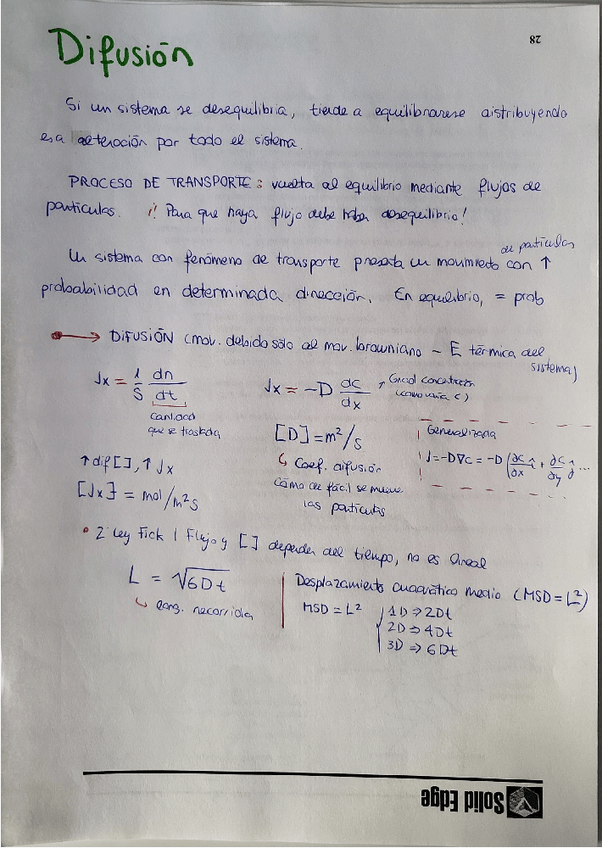 28
Difusión
Si un sistema se desequilibria, tiende a equilibrarese distribuyendo
esa alteración por todo el sistema.
PROCESO DE TRANSPORTE: vuelta al equilibrio mediante flujos de
partículas. ¡! Para que haya flujo debe haber desequilibrio!
de partículas
Un sistema con fenómeno de transporte presenta un movimiento con ↑
probabilidad en determinada dirección. En equilibrio, = prob
→ DIFUSIÓN (mov. debido sólo al mov. browniano - E térmica del
sistema)
Jx = 1/S dn/dt
cantidad
que se traslada
Jx = -D dc/dx
→ Grad concentración
(como varía c)
[D] = m²/s
↳ Coef. difusión
cómo de fácil se mueve
las partículas
Generalizada
J = -D∇C = -D (∂C/∂x î + ∂C/∂y ĵ ...
↑ dif [ ], ↑ Jx
[Jx] = mol/m²s
• 2ª Ley Fick | Flujo y [ ] depender del tiempo, no es lineal
L = √6Dt
↳ long. recorrida
Desplazamiento cuadrático medio (MSD = L²)
MSD = L²
1D ⇒ 2Dt
2D ⇒ 4Dt
3D ⇒ 6Dt
Solid Edge